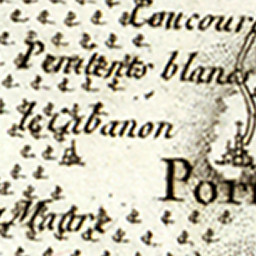 Coucour
Penitents blancs
le Cabanon
Por
Madre